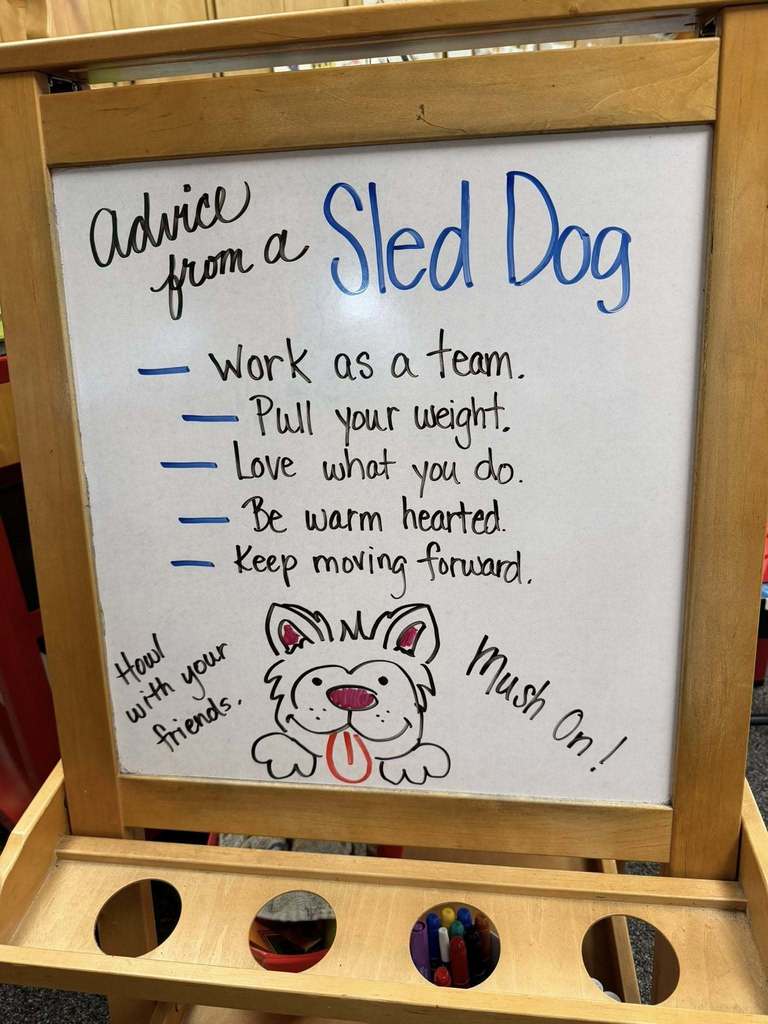 Advice
from a Sled Dog
— Work as a team.
— Pull your weight.
— Love what you do.
— Be warm hearted.
— Keep moving forward.
Howl
with your
friends.
Mush On!